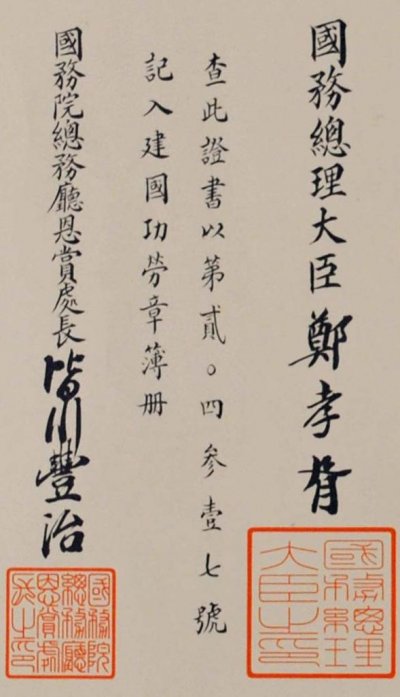 國務總理大臣鄭孝胥
查此證書以第貳〇四參壹七號
記入建國功勞章簿册
國務院總務廳恩賞處長皆川豐治
國務總理
大臣之印
國務院
總務廳
恩賞處
長之印